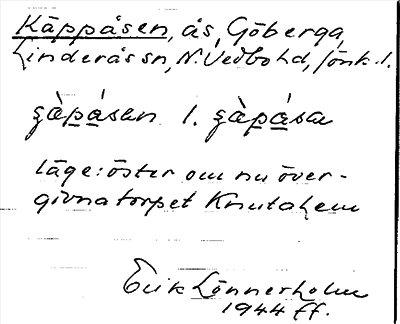 Käppåsen, ås, Göberga,
Linderås sn, N. Vedbo hd, Jönk. l.
şàpåsan l. şàpåsa
läge: öster om nu över-
givna torpet Knutahem
Erik Lönnerholm
1944 ff.